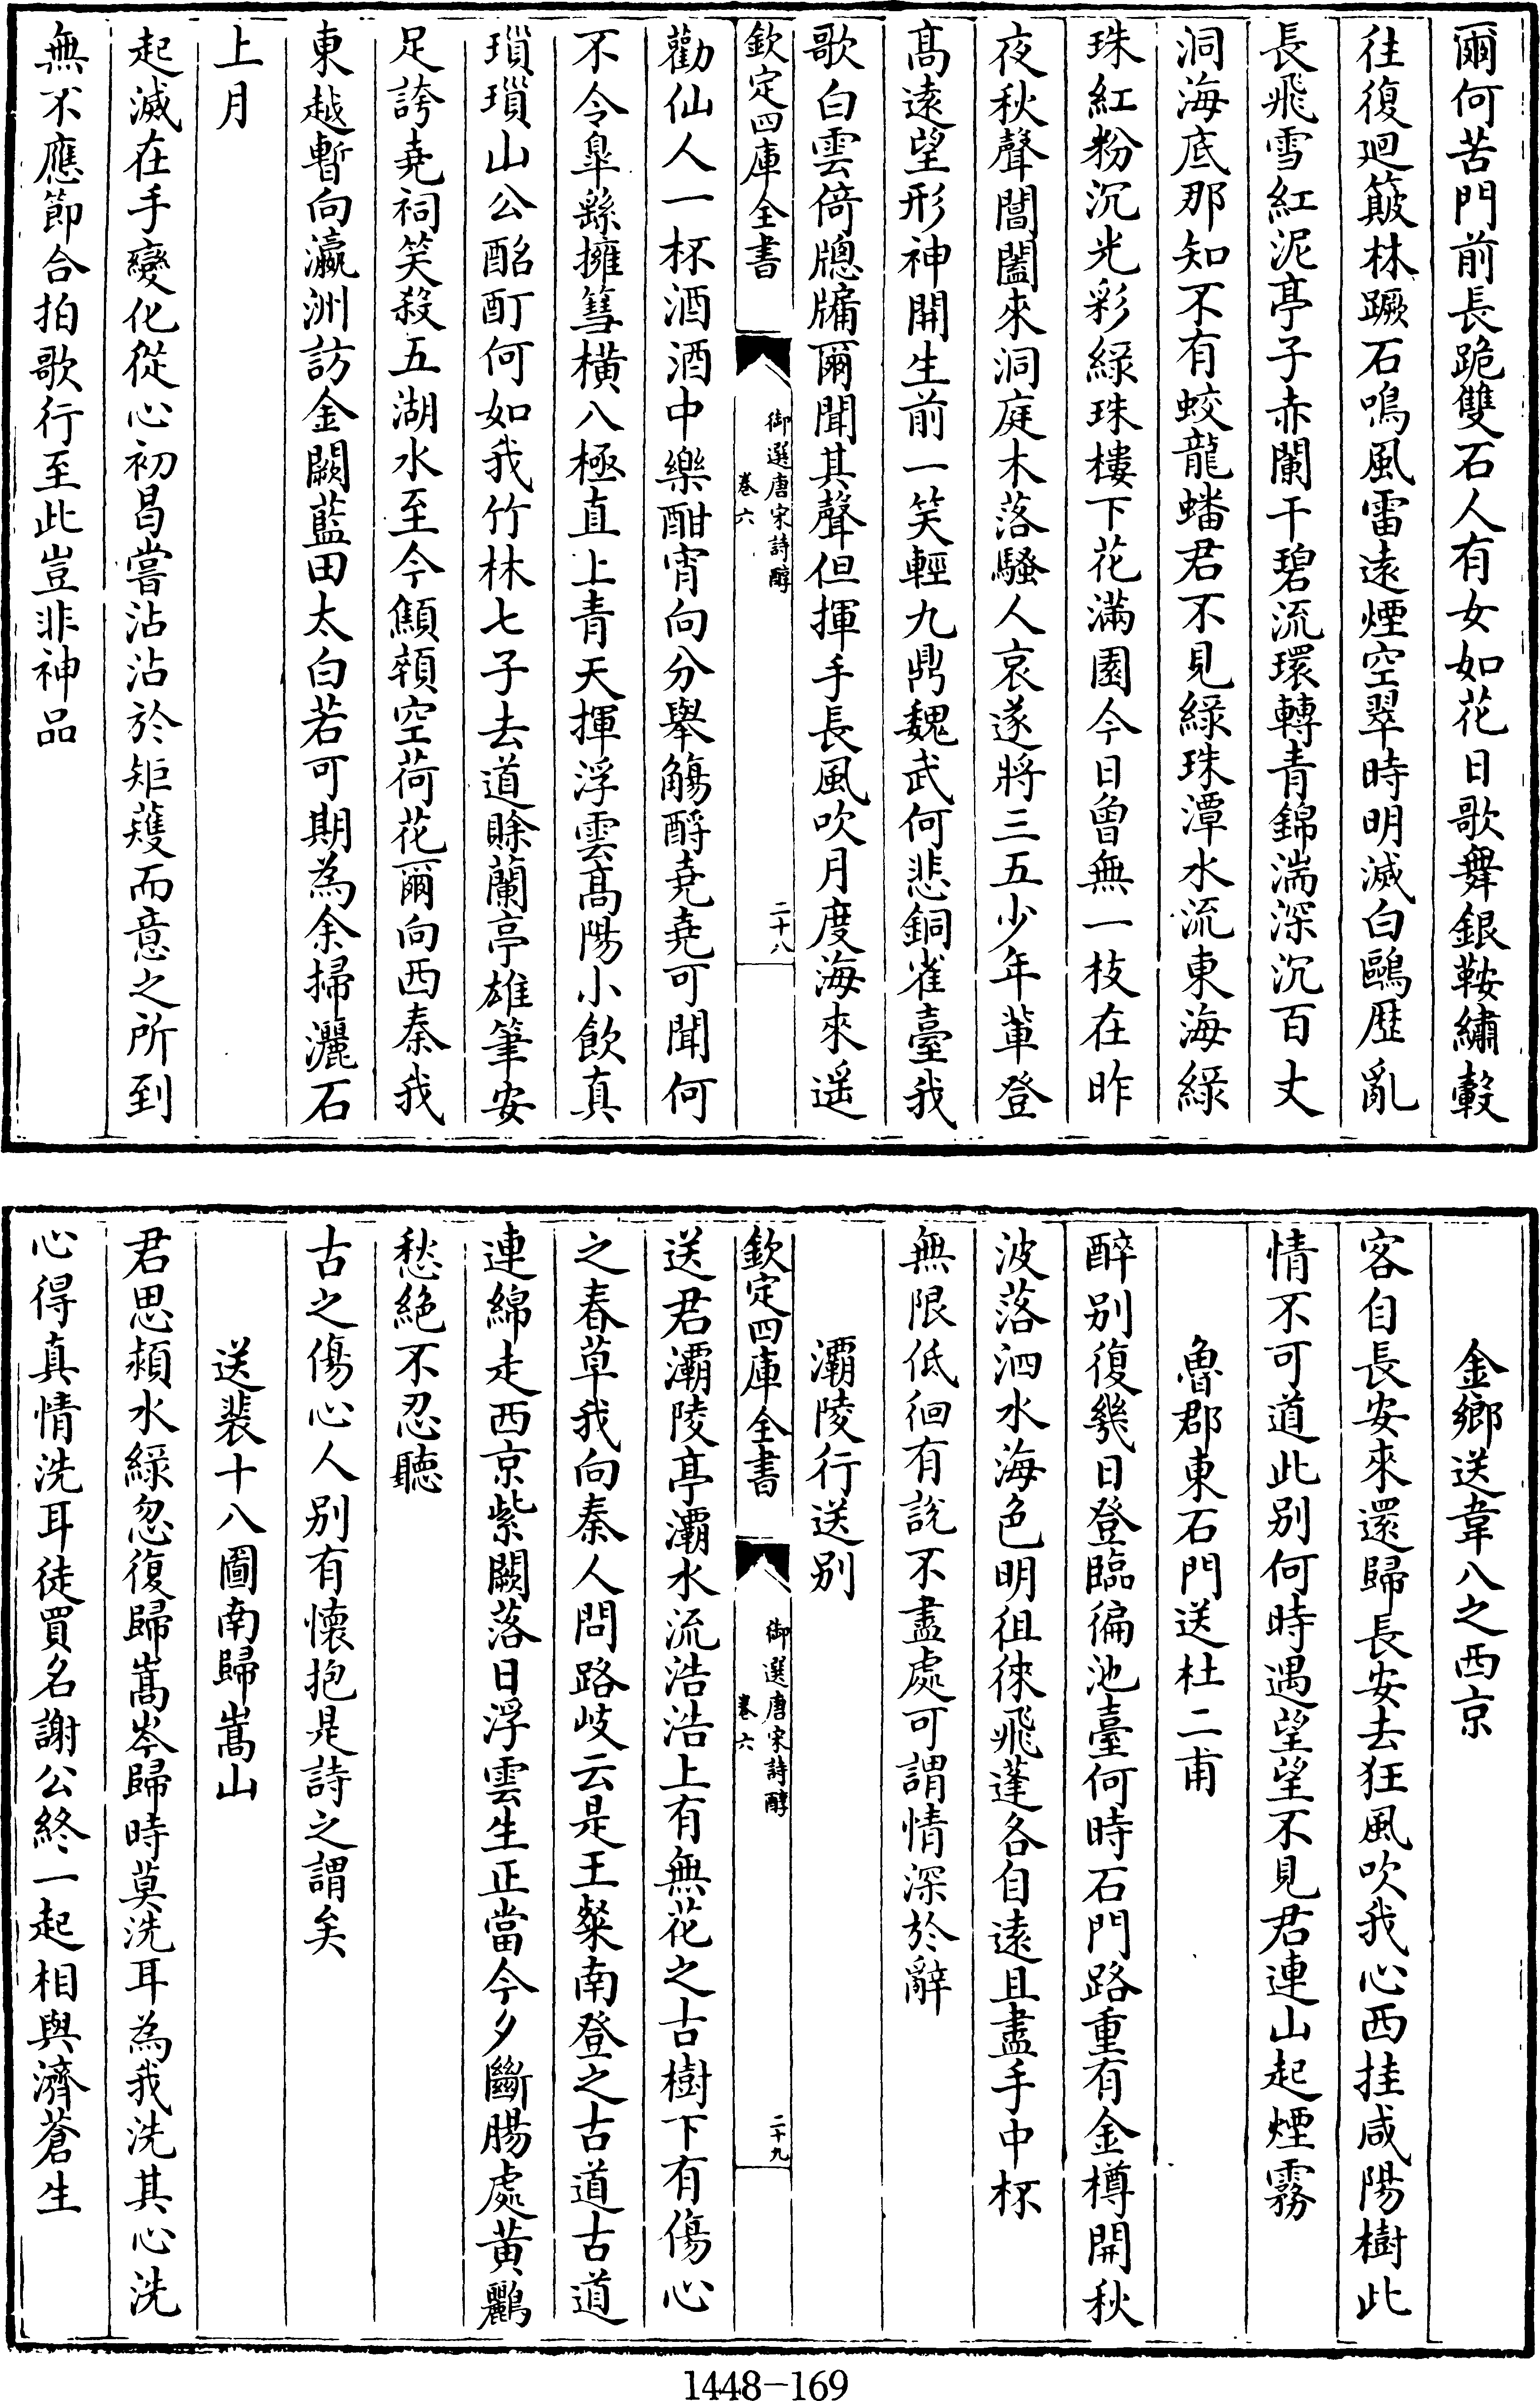 爾何苦門前長跪雙石人有女如花日歌舞銀鞍繡轂
往復迴簸林蹶石鳴風雷遠煙空翠時明滅白鷗歷亂
長飛雪紅泥亭子赤闌干碧流環轉青錦湍深沉百丈
洞海底那知不有蛟龍蟠君不見綠珠潭水流東海綠
珠紅粉沉光彩綠珠樓下花滿園今日曾無一枝在昨
夜秋聲閶闔來洞庭木落騷人哀遂將三五少年輩登
髙遠望形神開生前一笑輕九鼎魏武何悲銅雀臺我
歌白雲倚牕牖爾聞其聲但揮手長風吹月度海來遥
欽定四庫全書 御選唐宋詩醇 卷六 二十八
勸仙人一杯酒酒中樂酣宵向分舉觴酹堯堯可聞何
不令臯繇擁篲橫八極直上青天揮浮雲髙陽小飲真
瑣瑣山公酩酊何如我竹林七子去道賒蘭亭雄筆安
足誇堯祠笑殺五湖水至今顦顇空荷花爾向西秦我
東越暫向瀛洲訪金闕藍田太白若可期為余掃灑石
上月
起滅在手變化從心初曷嘗沾沾於矩矱而意之所到
無不應節合拍歌行至此豈非神品
金鄉送韋八之西京
客自長安來還歸長安去狂風吹我心西挂咸陽樹此
情不可道此别何時遇望望不見君連山起煙霧
魯郡東石門送杜二甫
醉别復幾日登臨徧池臺何時石門路重有金樽開秋
波落泗水海色明徂徠飛蓬各自遠且盡手中杯
無限低徊有説不盡處可謂情深於辭
灞陵行送别
欽定四庫全書 御選唐宋詩醇 卷六 二十九
送君灞陵亭灞水流浩浩上有無花之古樹下有傷心
之春草我向秦人問路岐云是王粲南登之古道古道
連綿走西京紫闕落日浮雲生正當今夕斷腸處黄鸝
愁絶不忍聽
古之傷心人别有懷抱是詩之謂矣
送裴十八圖南歸嵩山
君思潁水綠忽復歸嵩岑歸時莫洗耳為我洗其心洗
心得真情洗耳徒買名謝公終一起相與濟蒼生
1448-169